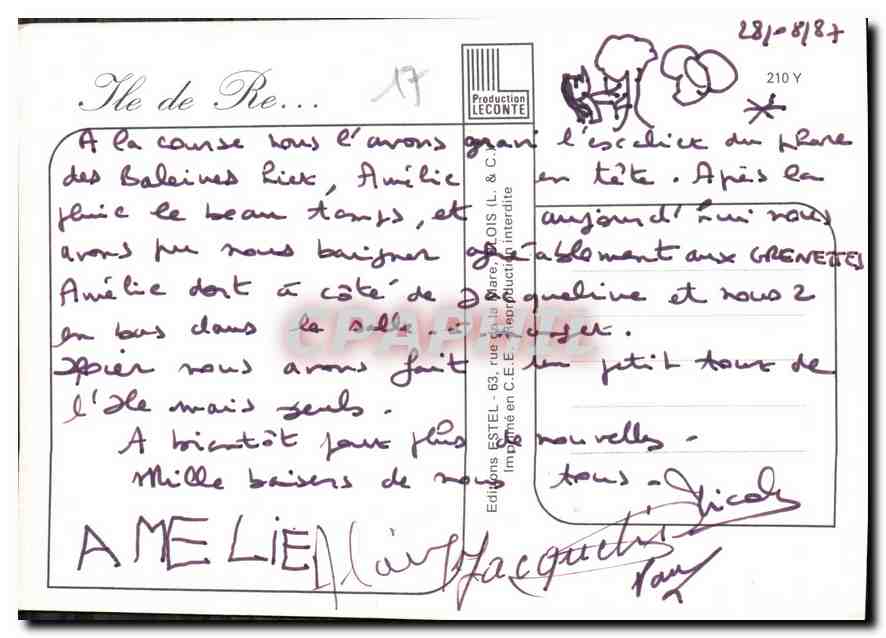 28/08/87
Ile de Re...
17
Production
LECONTE
210 Y
A la course nous l'avons gravi l'escalier du phare
des Baleines hier, Amélie en tête. Après la
pluie le beau temps, et aujourd'hui nous
avons pu nous baigner agréablement aux GRENETTES
Amélie dort à côté de Jacqueline et nous 2
en bas dans la salle à manger.
Hier nous avons fait un petit tour de
l'Ile mais seuls.
A bientôt pour plus de nouvelles -
Mille baisers de nous tous -
Nicole
AMELIE Alain Jacqueline
Editions ESTEL - 63, rue de la Mare, BLOIS (L. & C.)
Imprimé en C.E.E. Reproduction interdite
CPAPHIL